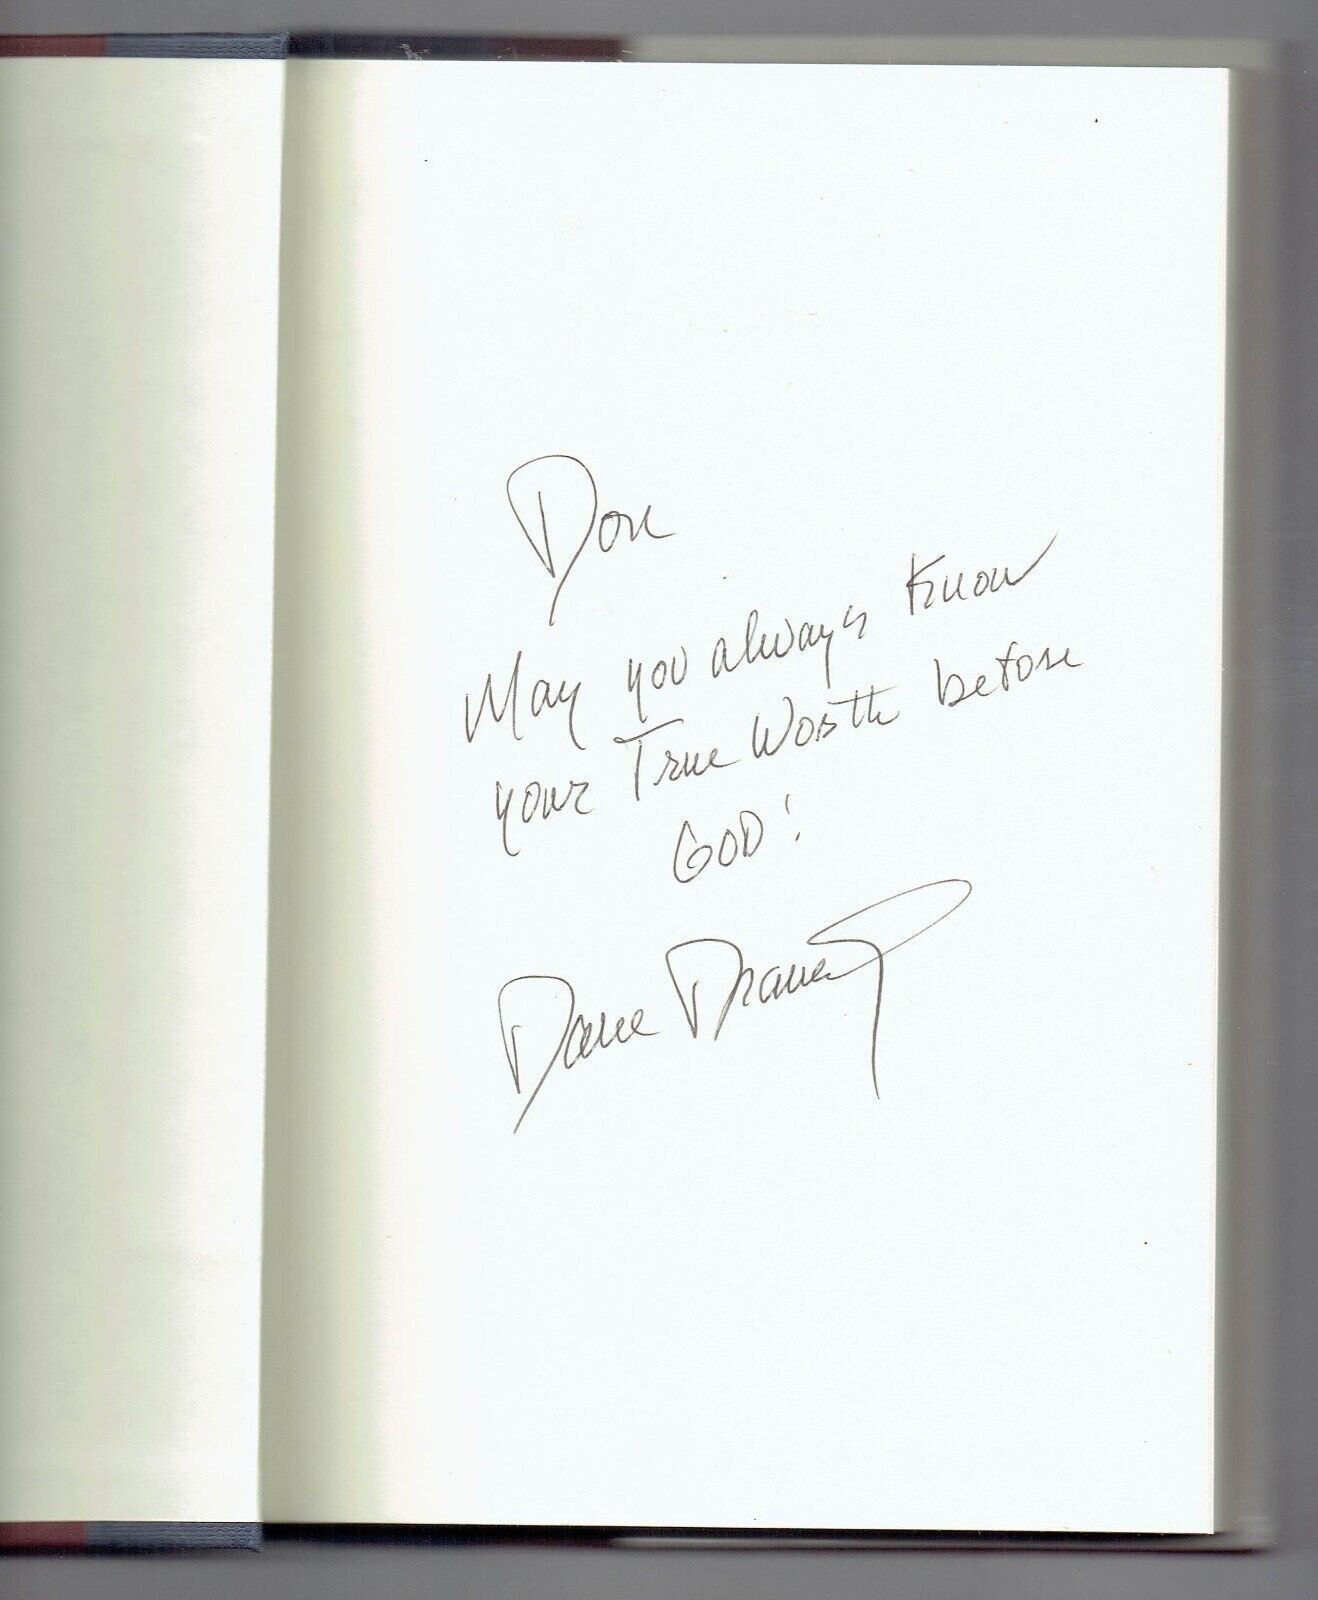 Don
May you always know
your True Worth before
GOD!
Dave Dravecky